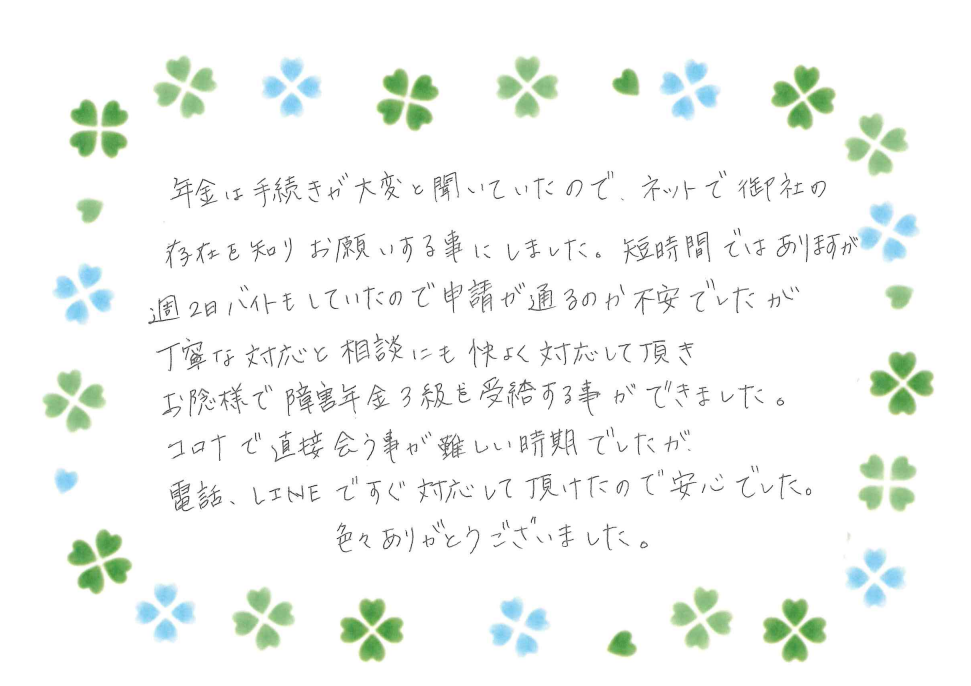 年金は手続きが大変と聞いていたので、ネットで御社の
存在を知りお願いする事にしました。短時間ではありますが
週2日バイトもしていたので申請が通るのか不安でしたが
丁寧な対応と相談にも快よく対応して頂き
お陰様で障害年金3級を受給する事ができました。
コロナで直接会う事が難しい時期でしたが、
電話、LINEですぐ対応して頂けたので安心でした。
色々ありがとうございました。